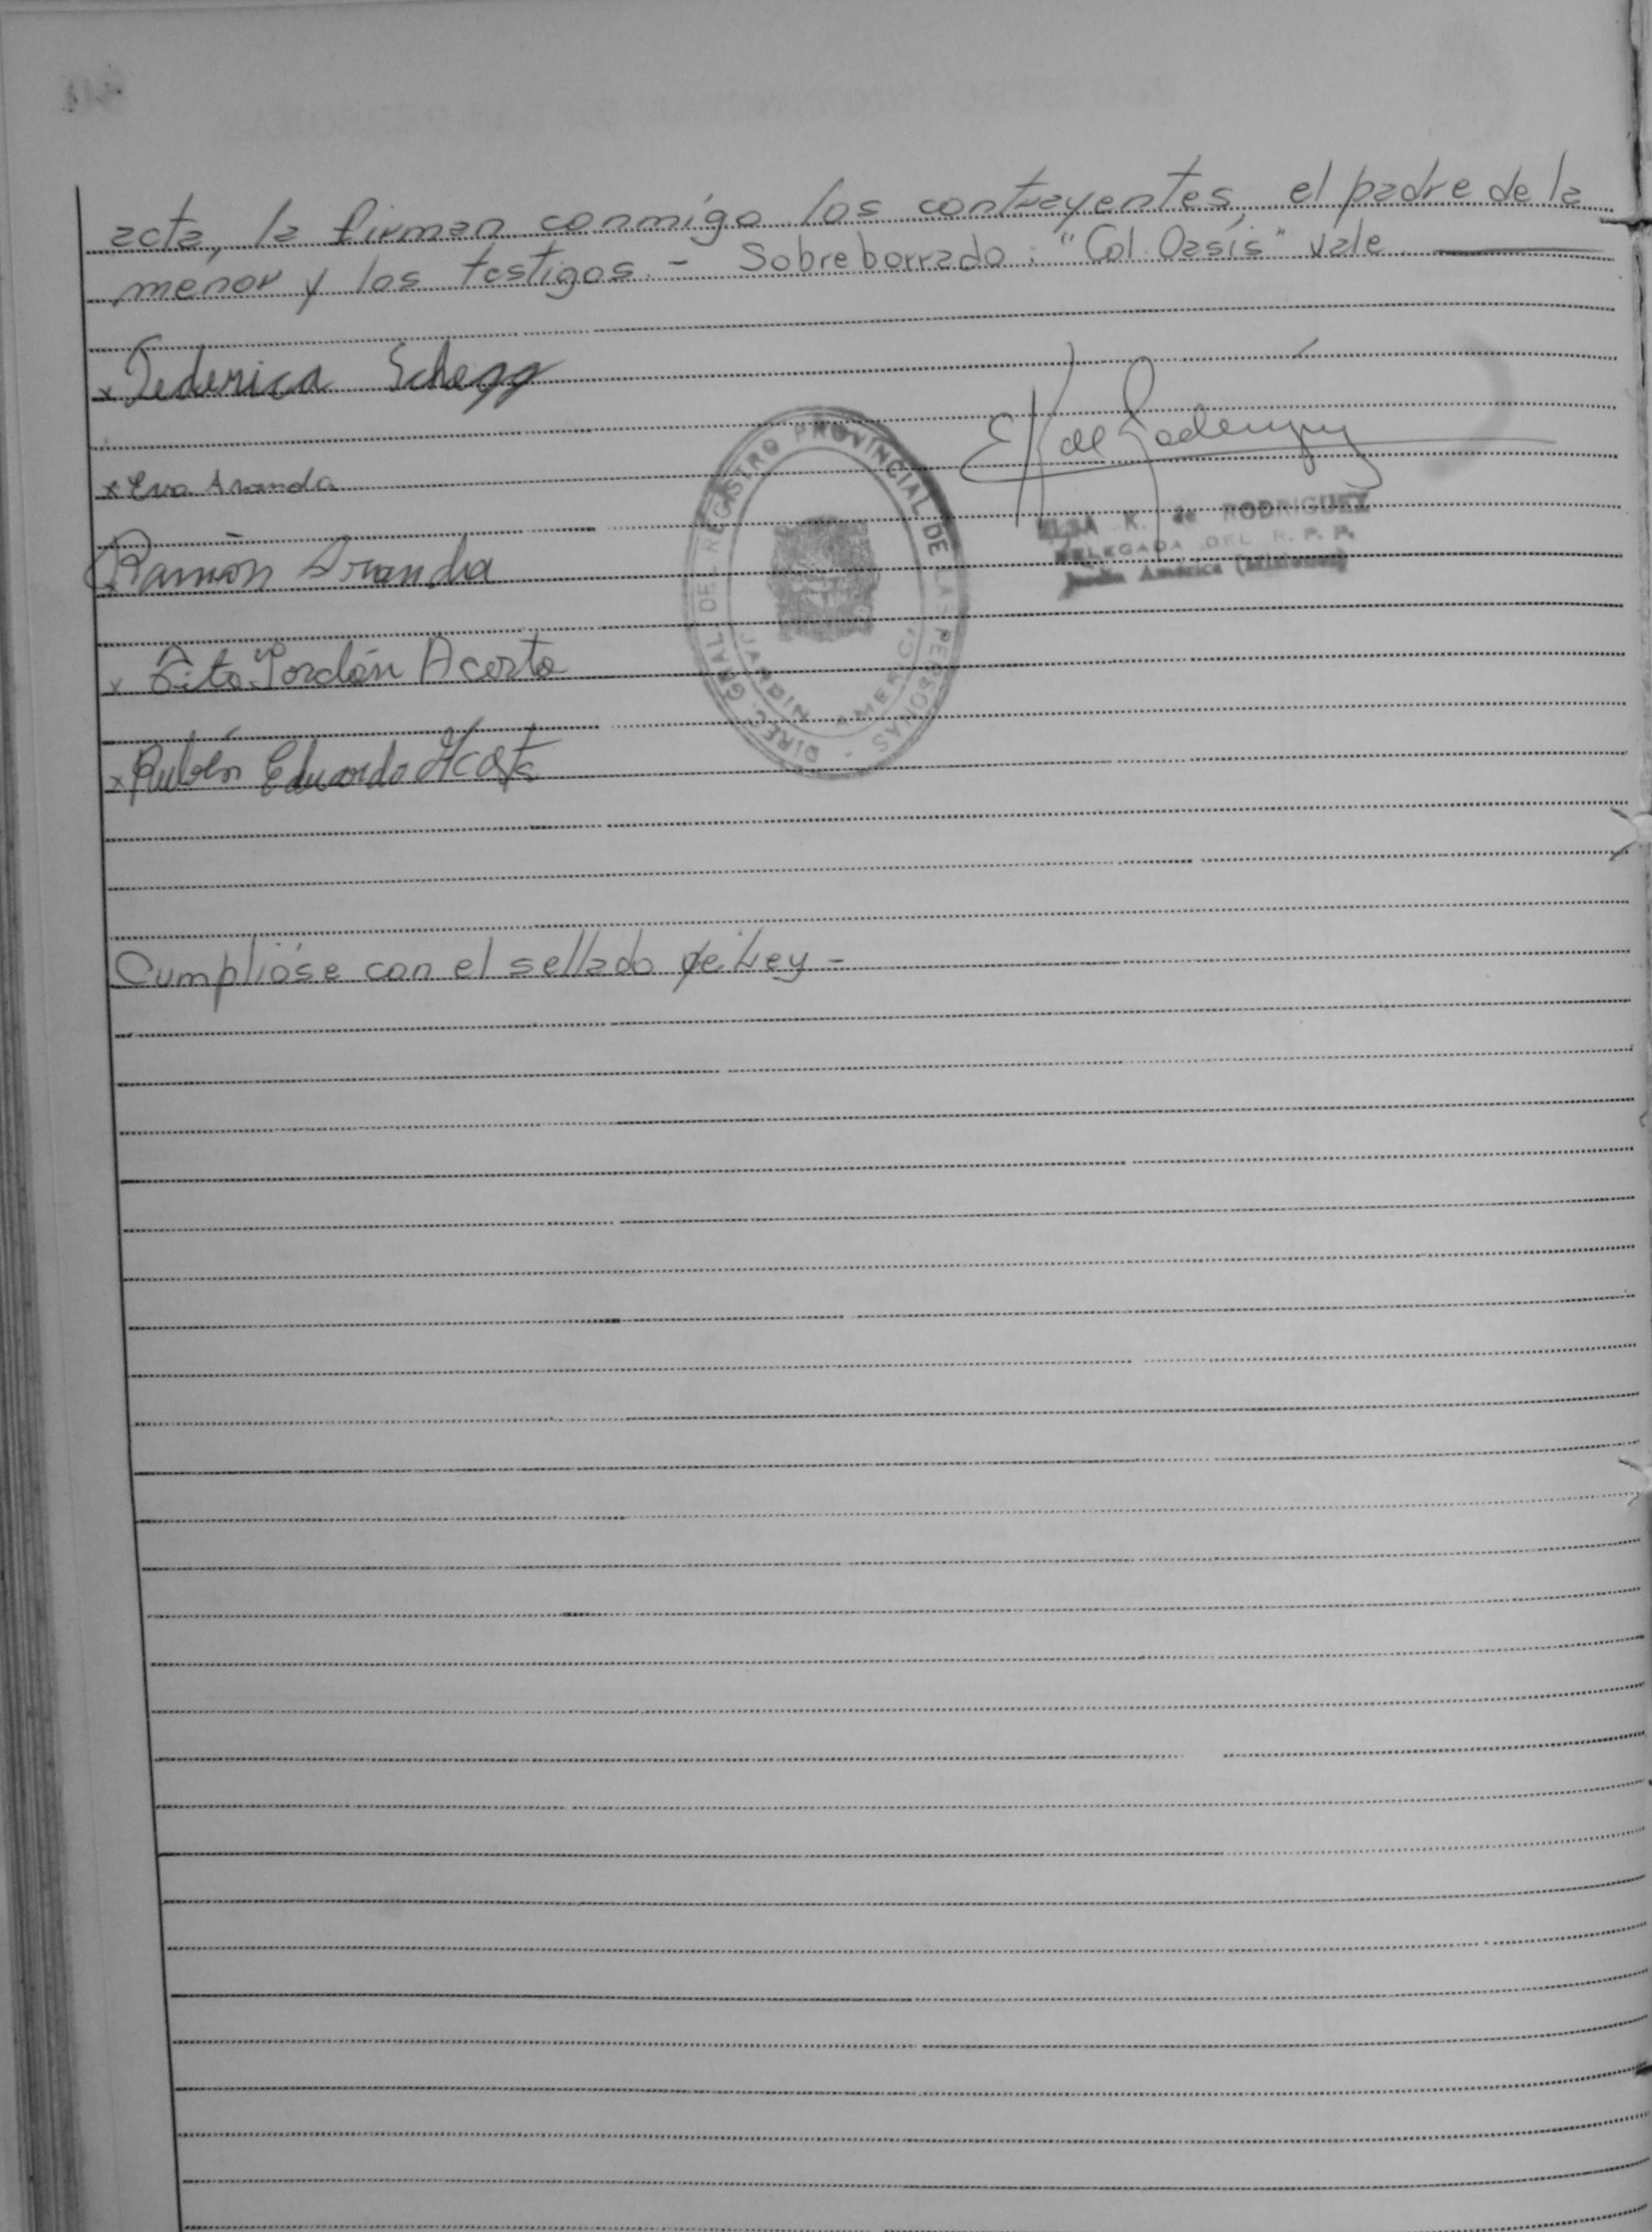 acta, la firman conmigo los contrayentes, el padre de la
menor y los testigos. - Sobreborrado: "Col. Oasis" vale
x Federica Schegg
x Eva Aranda
Ramón Aranda
x Tito Jordán Acosta
x Rubén Eduardo Acosta
E K de Rodriguez
ELSA K. de RODRIGUEZ
DELEGADA DEL R. P. P.
Jardín América (Misiones)
DIREC. GRAL. DE REGISTRO PROVINCIAL DE LAS PERSONAS
AMERICA
Cumplióse con el sellado de Ley -